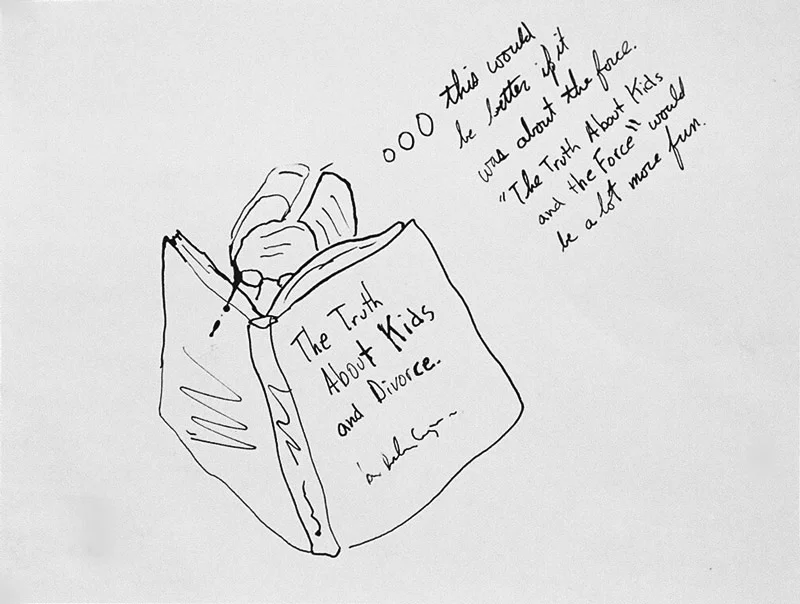 this would
be better if it
was about the force.
"The Truth About Kids
and the Force" would
be a lot more fun.
The Truth
About Kids
and Divorce.